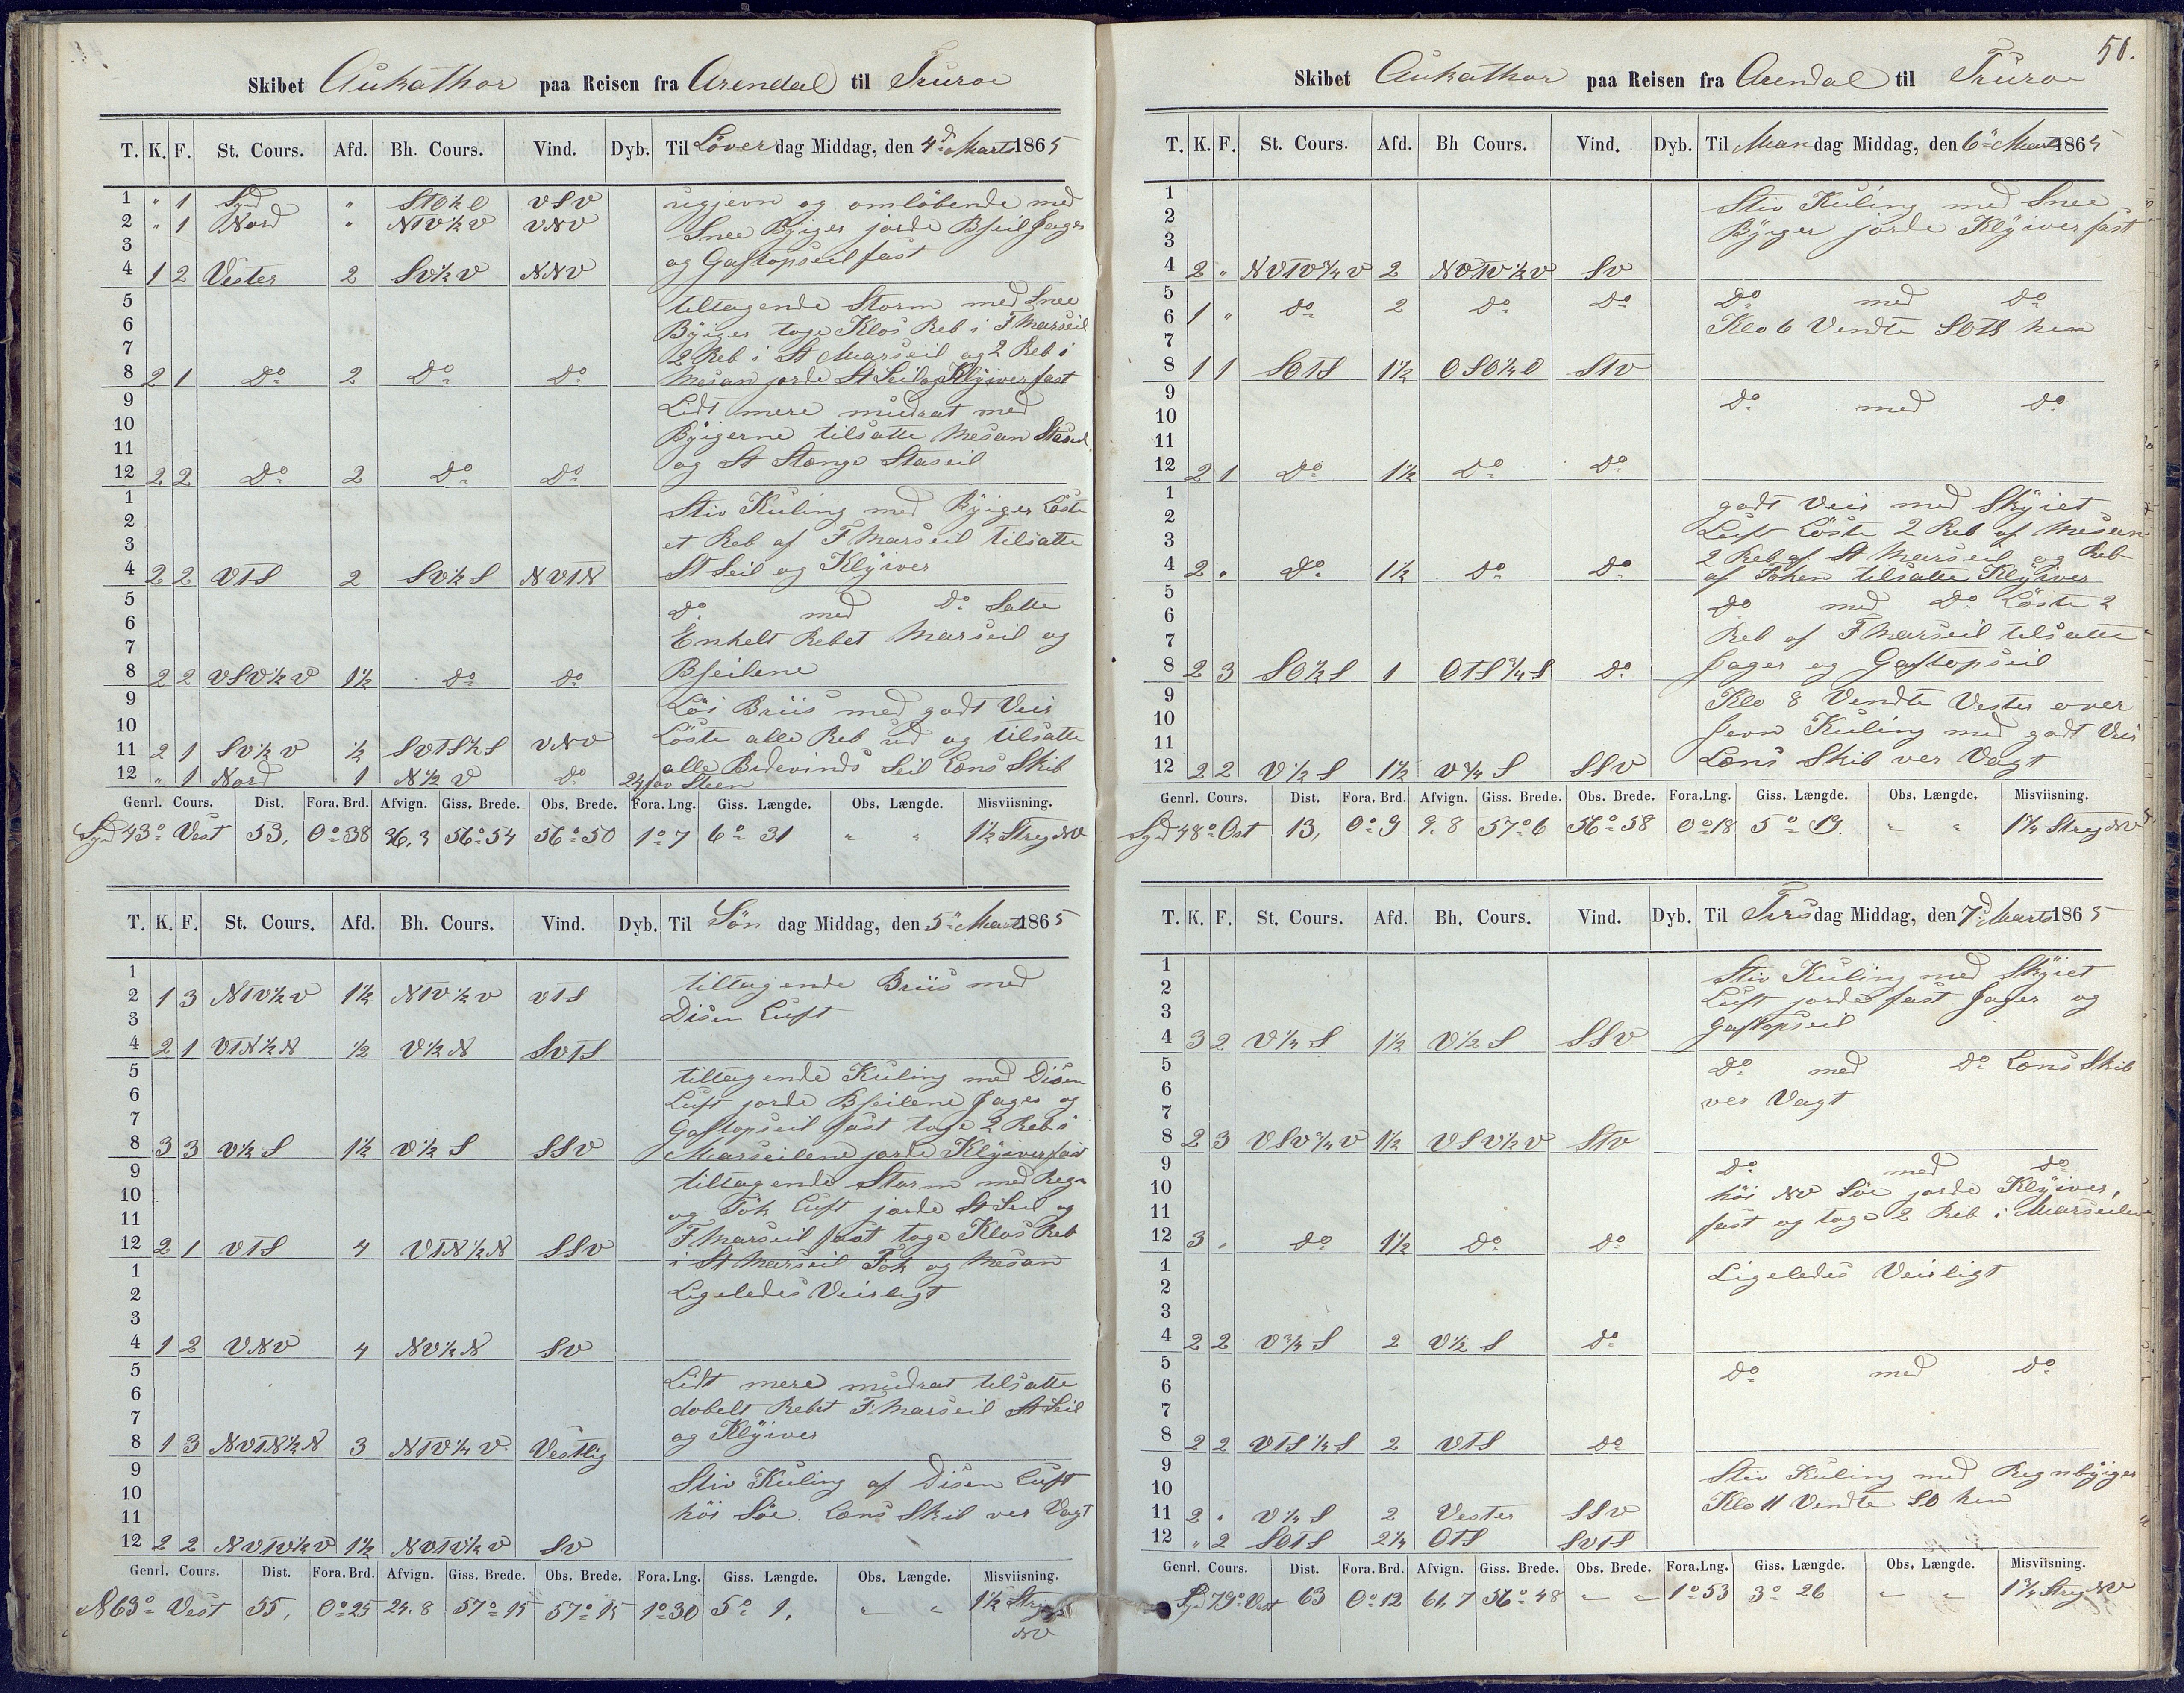 Skibet Aukathor paa Reisen fra Arendal til Truroe
T. K. F. St. Cours. Afd. Bh. Cours. Vind. Dyb. Til Löver dag Middag, den 4d Marts 1865
1 " 1 Syd " StO½O VSV ugjevn og omløbende med
2 " 1 Nord " NTV½V VNV Snee Byiger jorde Bseil Jager
3 og Gaftopseil fast
4 1 2 Vester 2 SV½V NNV
5 tiltagende Storm med Snee
6 Byiger toge Klos Reb i F Marseil
7 2 Reb i St Marseil og 2 Reb i
8 2 1 Do 2 Do Do Mesan jorde St Seil og Klyiver fast
9 Lidt mere mudrat med
10 Byigerne tilsatte Mesan Staseil
11 og St Stænge Staseil
12 2 2 Do 2 Do Do
1 Stiv Kuling med Byiger Löste
2 et Reb af F Marseil tilsatte
3 St Seil og Klyiver
4 2 2 VTS 2 SV½S NVTN
5 Do med Do Satte
6 Enkelt Rebet Marseil og
7 Bseilene
8 2 2 VSV½V 1½ Do Do
9 Löi Briis med godt Veir
10 Löste alle Reb ud og tilsatte
11 2 1 SV½V ½ SVTS½S VNV alle Bidevinds Seil Læns Skib
12 " 1 Nord 1 N½V Do 24 fav Steen
Genrl. Cours. Dist. Fora. Brd. Afvign. Giss. Brede. Obs. Brede. Fora. Lng. Giss. Længde. Obs. Længde. Misviisning.
Syd 43° Vest 53, 0°38 36,3 56°54 56°50 1°7 6° 31 " " 1½ Streg NV
T. K. F. St. Cours. Afd. Bh. Cours. Vind. Dyb. Til Sön dag Middag, den 5te Marts 1865
1 tiltagende Briis med
2 1 3 NTV½V 1½ NTV½V VTS Disen Luft
3
4 2 1 VTN½N ½ V½N SVTS
5 tiltagende Kuling med Disen
6 Luft jorde Bseilene Jager og
7 Gaftopseil fast toge 2 Reb i
8 3 3 V½S 1½ V½S SSV Marseilene jorde Klyiver fast
9 tiltagende Storm med Regn
10 og Tök Luft jorde St Seil og
11 F Marseil fast toge Klos Reb
12 2 1 VTS 4 VTN½N SSV i St Marseil Fok og Mesan
1 Ligeledes Veirligt
2
3
4 1 2 VNV 4 NV½N SV
5 Lidt mere mudrat tilsatte
6 dobelt Rebet F. Marseil St Seil
7 og Klyiver
8 1 3 NVTN½N 3 NTV¼V Vestlig
9 Stiv Kuling af Disen Luft
10 höi Söe. Læns Skib ver Vagt
11
12 2 2 NVTV½V 1½ NVTV½V SV
Genrl. Cours. Dist. Fora. Brd. Afvign. Giss. Brede. Obs. Brede. Fora. Lng. Giss. Længde. Obs. Længde. Misviisning.
N 63° Vest 55, 0°25 24.8 57°15 57°15 1°30 5° 1, " " 1½ Streg NV
50.
Skibet Aukathor paa Reisen fra Arendal til Truroe
T. K. F. St. Cours. Afd. Bh Cours. Vind. Dyb. Til Man dag Middag, den 6te Marts 1865
1 Stiv Kuling med Snee
2 Byiger jorde Klyiver fast
3
4 2 " NVTV¾V 2 NVTV½V SV
5 Do med Do
6 1 " Do 2 Do Do Klo 6 Vendte SOTS hen
7
8 1 1 SOTS 1½ OSO¼O STV
9 Do med Do
10
11
12 2 1 Do 1½ Do Do
1 godt Veir med Skyiet
2 Luft Löste 2 Reb af Mesan
3 2 Reb af St Marseil og Reb
4 2 " Do 1½ Do Do af Foken tilsatte Klyiver
5 Do med Do Löste 2
6 Reb af F Marseil tilsatte
7 Jager og Gaftopseil
8 2 3 SO½S 1 OTS¾S Do
9 Klo 8 Vendte Vester over
10 Jevn Kuling med godt Veir
11 Læns Skib ver Vagt
12 2 2 V½S 1½ V¾S SSV
Genrl. Cours. Dist. Fora. Brd. Afvign. Giss. Brede. Obs. Brede. Fora. Lng. Giss. Længde. Obs. Længde. Misviisning.
Syd 48° Ost 13, 0°9 9.8 57°6 56°58 0°18 5° 19. " " 1¾ Streg NV
T. K. F. St. Cours. Afd. Bh. Cours. Vind. Dyb. Til Tirs dag Middag, den 7d Marts 1865
1 Stiv Kuling med Skyiet
2 Luft jorde fast Jager og
3 Gaftopseil
4 3 2 V¼S 1½ V½S SSV
5 Do med Do Læns Skib
6 ver Vagt
7
8 2 3 VSV¾V 1½ VSV½V STV
9 Do med Do
10 höi NV Söe jorde Klyiver,
11 fast og toge 2 Reb i Marseilene
12 3 " Do 1½ Do Do
1 Ligeledes Veirligt
2
3
4 2 2 V¾S 2 V½S Do
5 Do med Do
6
7
8 2 2 VTS¼S 2 VTS Do
9 Stiv Kuling med Regnbyiger
10 Klo 11 Vendte SO hen
11 2 " V¼S 2 Vester SSV
12 " 2 SOTS 2¼ OTS SVTS
Genrl. Cours. Dist. Fora. Brd. Afvign. Giss. Brede. Obs. Brede. Fora. Lng. Giss. Længde. Obs. Længde. Misviisning.
Syd 79° Vest 63 0°12 61,7 56°48 " " 1°53 3° 26 " " 1¾ Streg NV